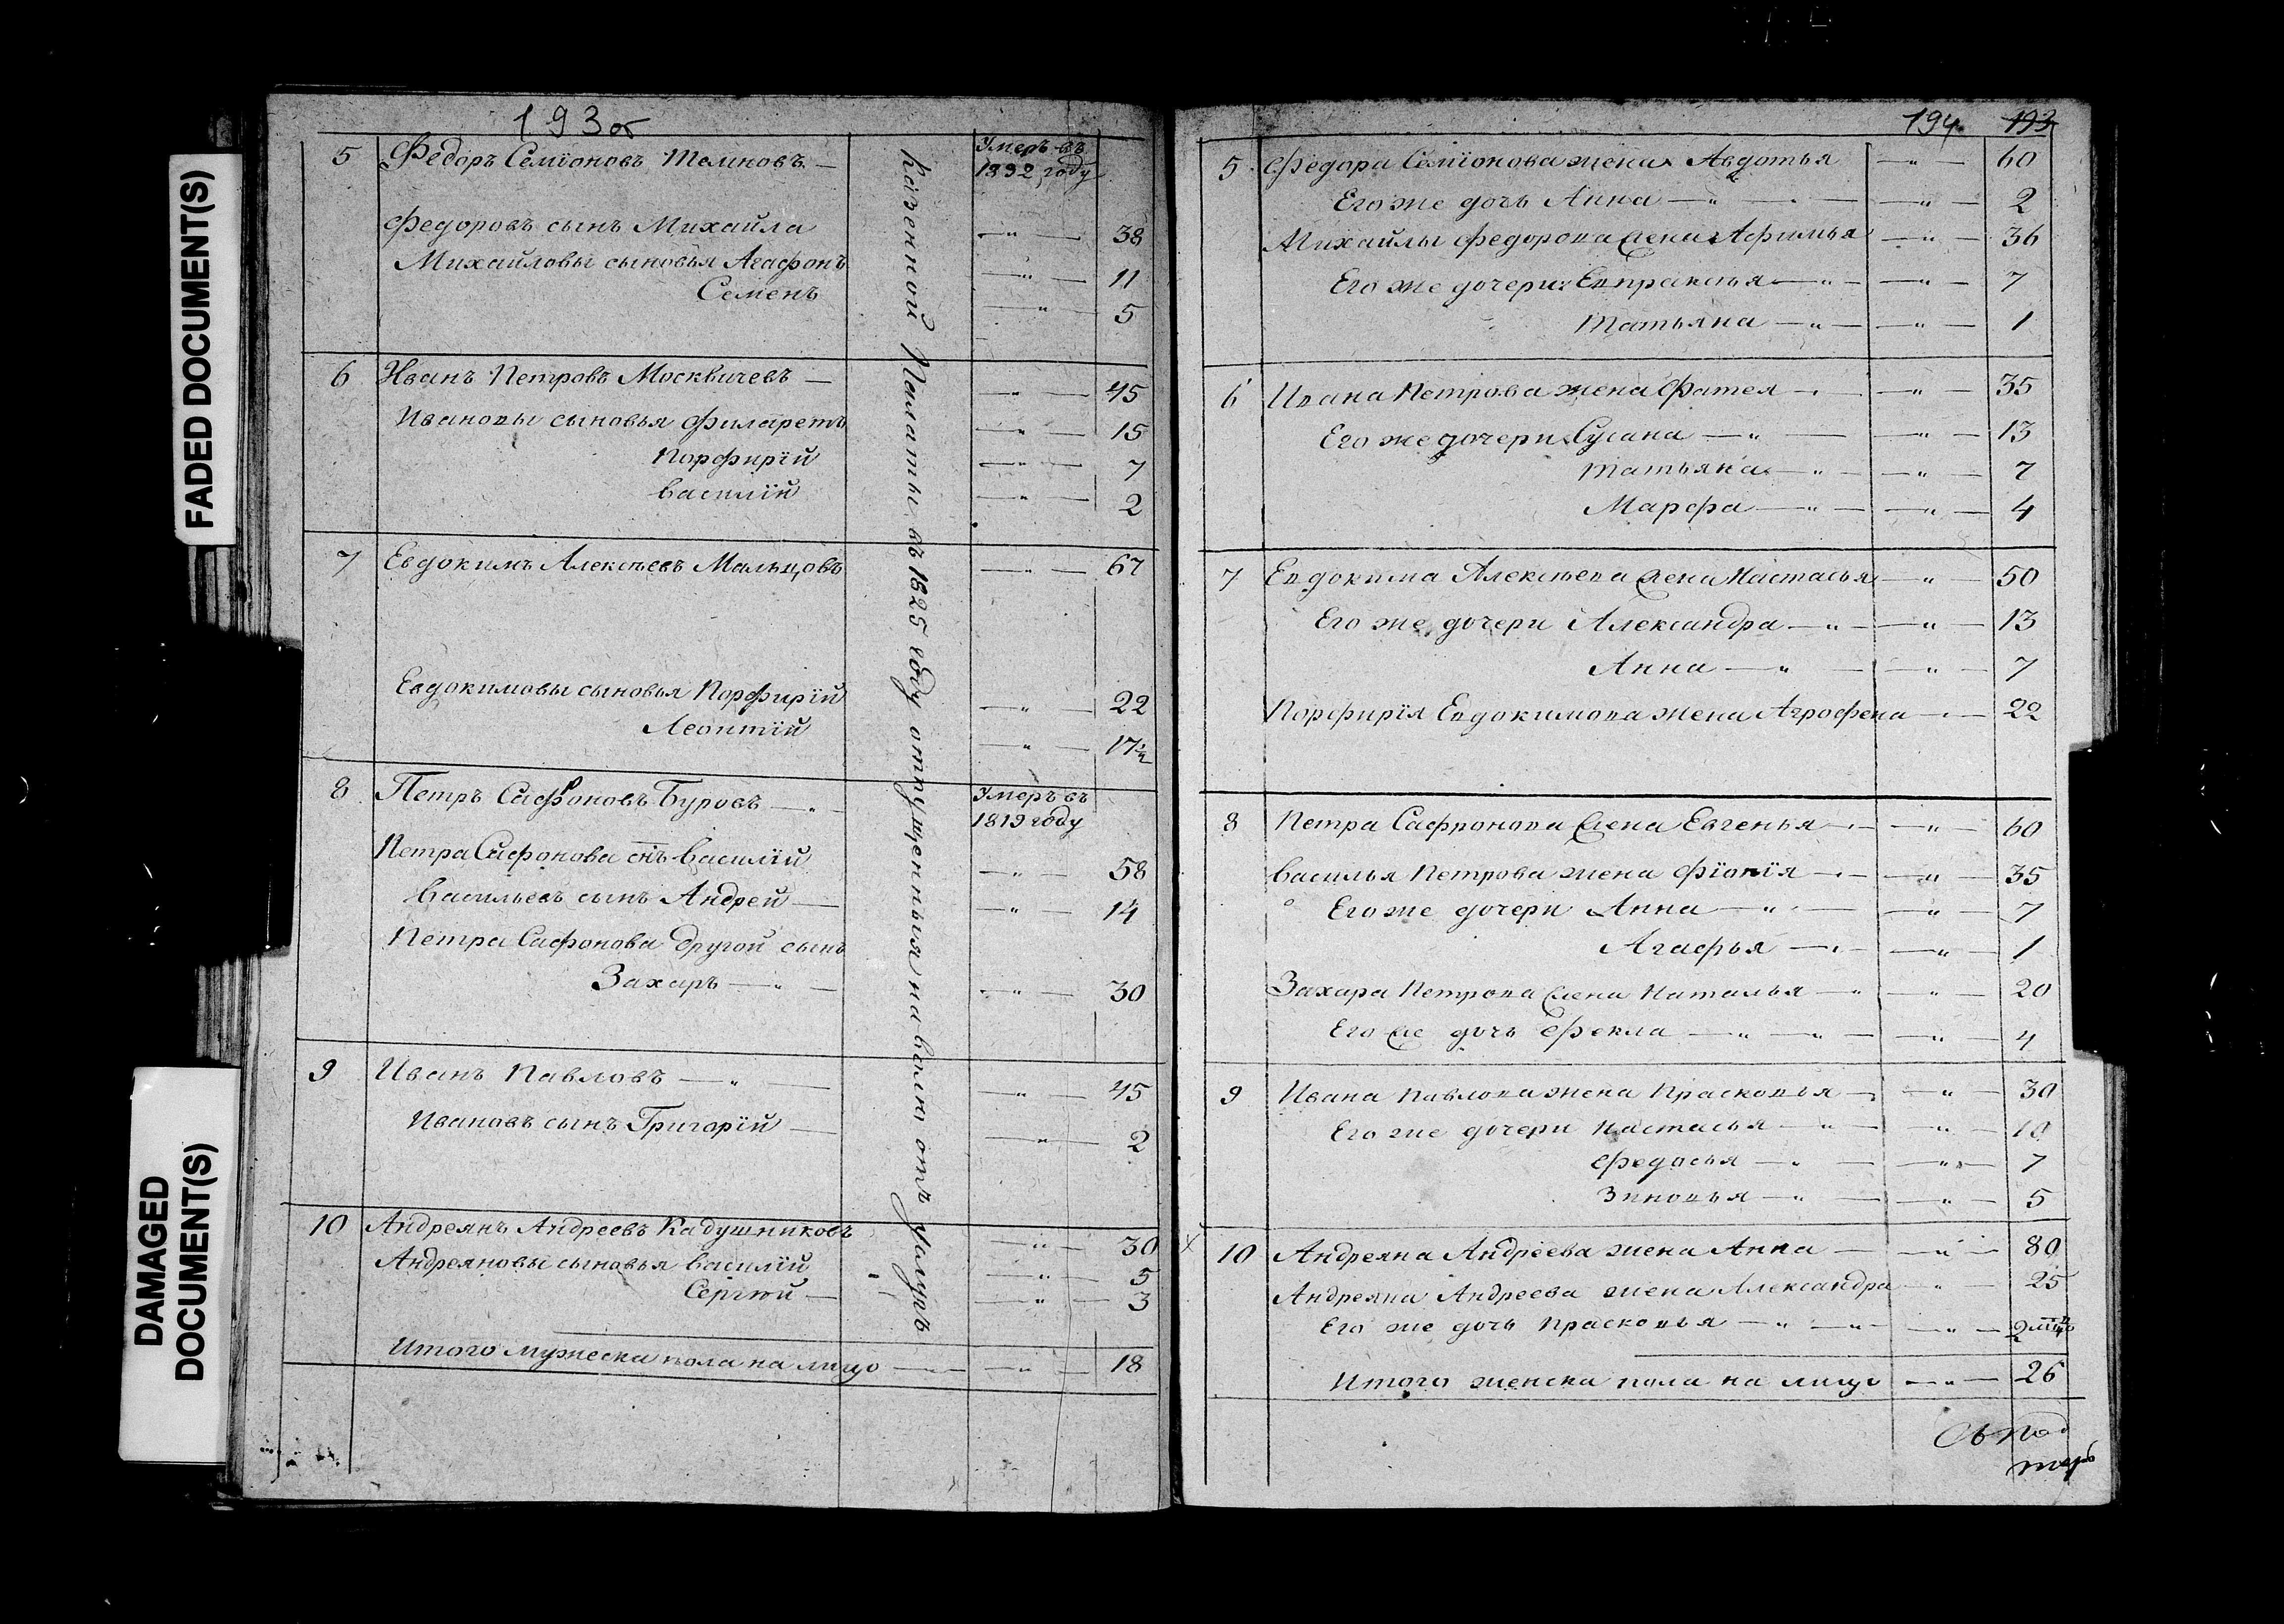 FADED DOCUMENT(S)
DAMAGED
DOCUMENT(S)
193об
5 Федоръ Семіоновъ Телиновъ — Умеръ въ
1832 году
Федоровъ сынъ Михайла — " — 38
Михайловы сыновья Агафонъ — " — 11
Семенъ — " — 5
6 Иванъ Петровъ Москвичевъ — — " — 45
Ивановы сыновья Филаретъ — " — 15
Порфирій — " — 7
Василій — " — 2
7 Евдокимъ Алексѣевъ Мальцовъ — " — 67
Евдокимовы сыновья Порфирій — " — 22
Леонтій — " — 17½
8 Петръ Сафоновъ Буровъ — " Умеръ въ
1819 году
Петра Сафонова снъ Василій — " — 58
Васильевъ сынъ Андрей — — " — 14
Петра Сафонова другой сынъ
Захаръ — " — — " — 30
9 Иванъ Павловъ — " — — " — 45
Ивановъ сынъ Григорій — — " — 2
10 Андреянъ Андреевъ Кадушниковъ — " — 30
Андреяновы сыновья Василій — " — 5
Сергѣй — — " — 3
Итого мужеска пола на лицо — — " — 18
Казенной Палаты въ 1825 году отпущенныя на волю отъ
194 193
5 Федора Семіонова жена Авдотья — " — 60
Его же дочь Анна — " — — " — 2
Михайлы Федорова жена Афимья — " — 36
Его же дочери Евпраксья — " — — " — 7
Татьяна — " — — " — 1
6 Ивана Петрова жена Фатея — " — 35
Его же дочери Сусана — " — — " — 13
Татьяна — " — — " — 7
Марфа — " — — " — 4
7 Евдокима Алексѣева жена Настасья — " — 50
Его же дочери Александра — " — — " — 13
Анна — " — — " — 7
Порфирія Евдокимова жена Агрофена — " — 22
8 Петра Сафронова жена Евгенья — " — 60
Василья Петрова жена Фіонія — " — 35
Его же дочери Анна — " — — " — 7
Агафья — " — — " — 1
Захара Петрова жена Наталья — " — " — 20
Его же дочь Фекла — " — " — — " — 4
9 Ивана Павлова жена Прасковья — — " — 30
Его же дочери Настасья — " — — " — 10
Федосья — " — — " — 7
Зиновья — " — — " — 5
10 Андреяна Андреева жена Анна — — " — 80
Андреяна Андреева жена Александра — " — 25
Его же дочь Прасковья — " — " — — " — 2
Итого женска пола на лицо — " — 26